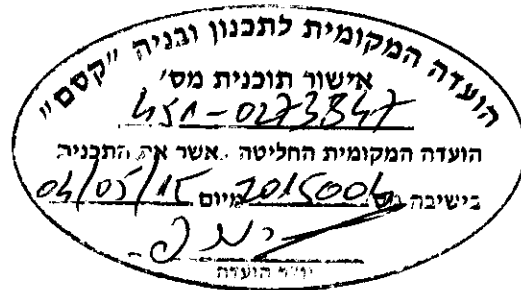 הועדה המקומית לתכנון ובניה "קסם"
אישור תוכנית מס'
451-0273347
הועדה המקומית החליטה לאשר את התכנית
בישיבה מס' 2015004 מיום 04/05/15
יו"ר הועדה